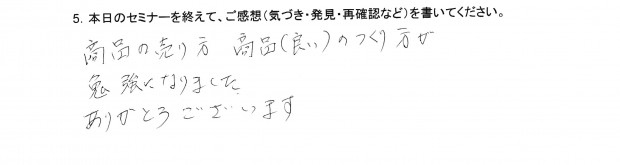 5. 本日のセミナーを終えて、ご感想(気づき・発見・再確認など)を書いてください。
商品の売り方 商品(良い)のつくり方が
勉強になりました
ありがとうございます